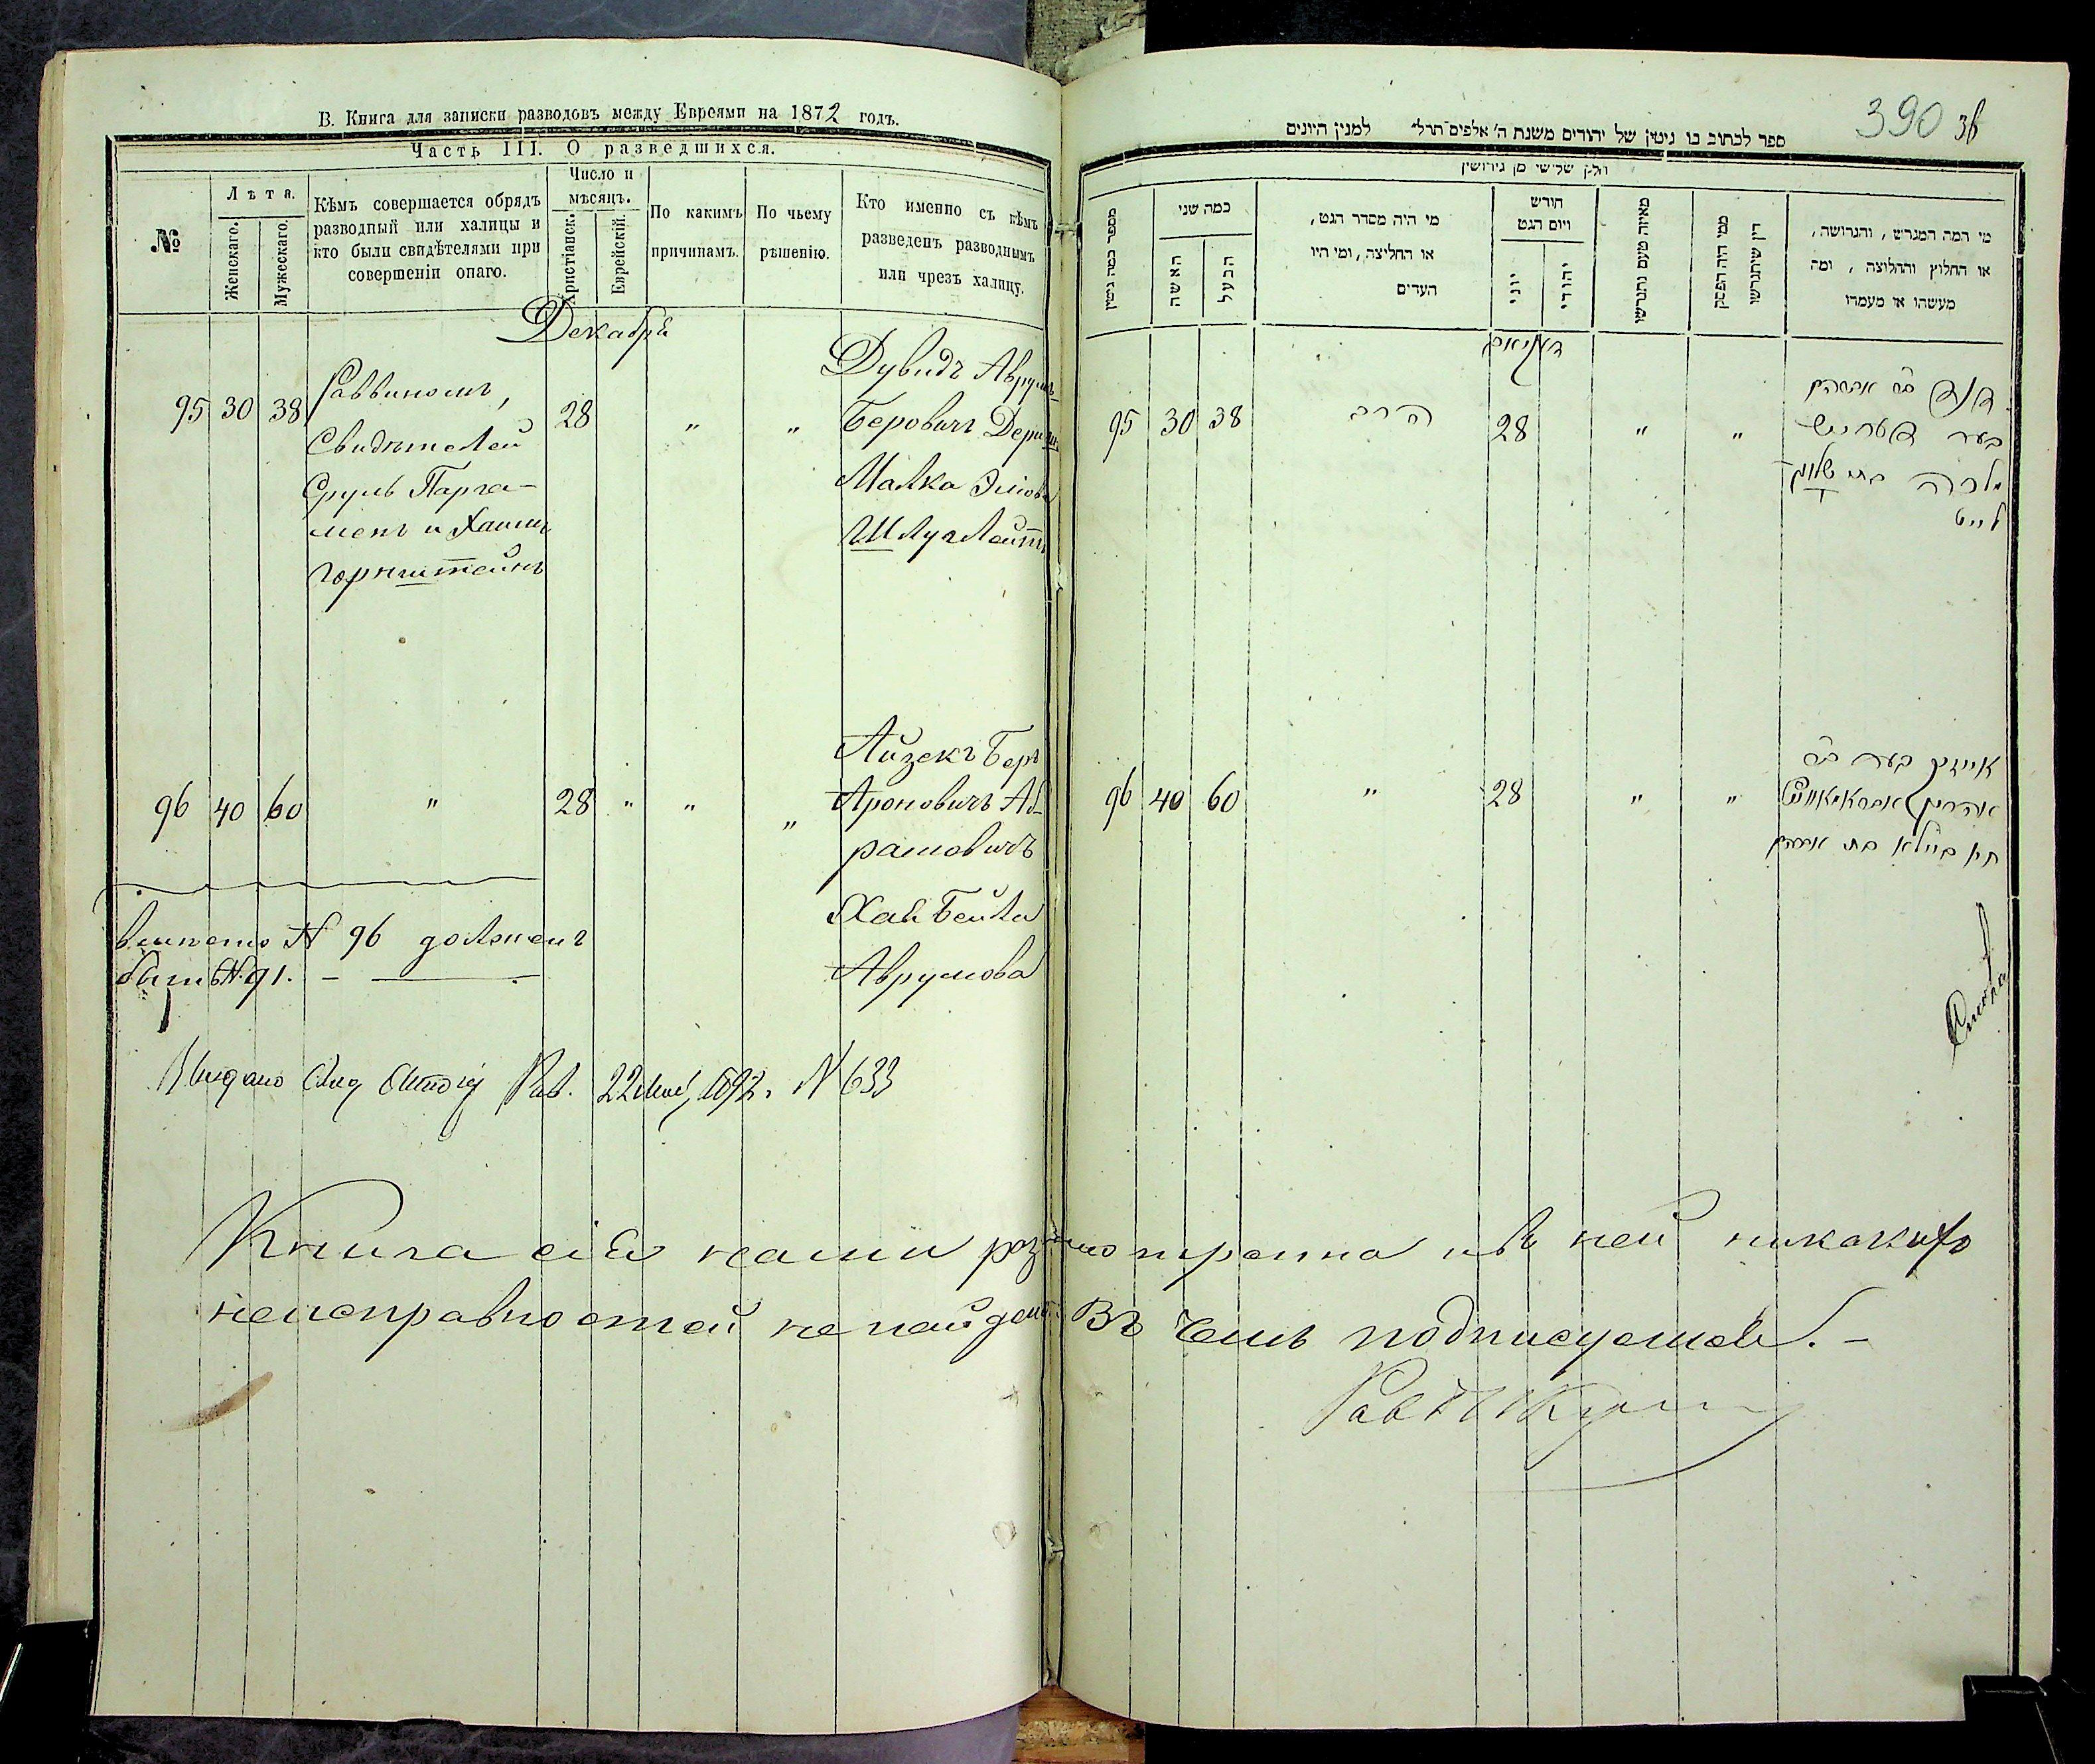 В. Книга для записки разводовъ между Евреями на 1872 годъ.
Часть III. О разведшихся.
№
Лѣта.
Женскаго.
Мужескаго.
Кѣмъ совершается обрядъ
разводный или халицы и
кто были свидѣтелями при
совершеніи онаго.
Число и
мѣсяцъ.
Христіанск.
Еврейскій.
По какимъ
причинамъ.
По чьему
рѣшенію.
Кто именно съ кѣмъ
разведенъ разводнымъ
или чрезъ халицу.
Декабря
95 30 38
Раввиномъ,
Свидѣтелей
Сруль Парга-
менъ и Хаимъ
Горнштейнъ
28 " "
Дувидъ Аврумъ
Беровичъ
Малка
96 40 60 " 28 " " "
Айзекъ Беръ
Ароновичъ Аб-
рамовичъ
Хая Бейла
Аврумова
вмѣсто № 96 долженъ
быть № 91. -
Выдано 22 1892. N 633
Книга сія нами разсмотренна и въ ней никакихъ
неисправностей не найдено Въ чемъ подписуемся. -
Рав
390 36
ספר לכתוב בו גיטין של יהודים משנת ה' אלפים תרל" למנין היונים
חלק שלישי מן גירושין
מספר כמה גיטין
כמה שני
האשה
הבעל
מי היה מסדר הגט,
או החליצה, ומי היו
העדים
חודש
ויום הגט
יוני
יהודי
מאיזה טעם נתגרשו
ממי היה הפסק
דין שיתגרשו
מי המה המגרש, והגרושה,
או החלוץ והחלוצה, ומה
מעשהו או מעמדו
95 30 38 הרב 28 " "
דוד ב"ר אברהם
בער
מלכה בת
לייט
96 40 60 " 28 " "
אייזיק בער ב"ר
אהרון אבראמאוויטש
חיה ביילא בת אברהם